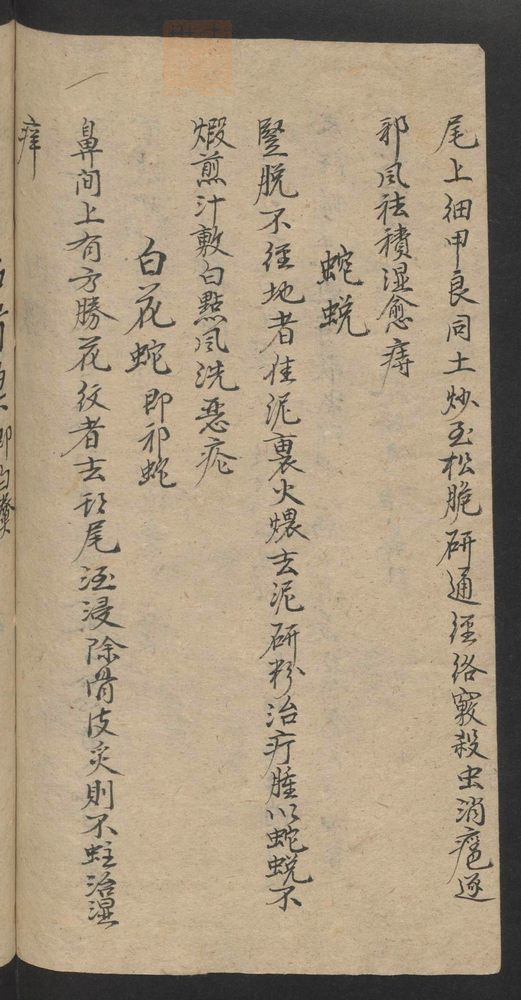 尾上細甲良同土炒至松脆研通經絡竅殺虫消瘡逐
邪风祛積湿愈痔
蛇蜕
竪脱不径地者佳泥裹火煨去泥研粉治疔腫以蛇蜕不
煅煎汁敷白點风洗恶疮
白花蛇即祁蛇
鼻间上有方勝花纹者去頭尾酒浸除骨皮炙則不蛀治湿
痒